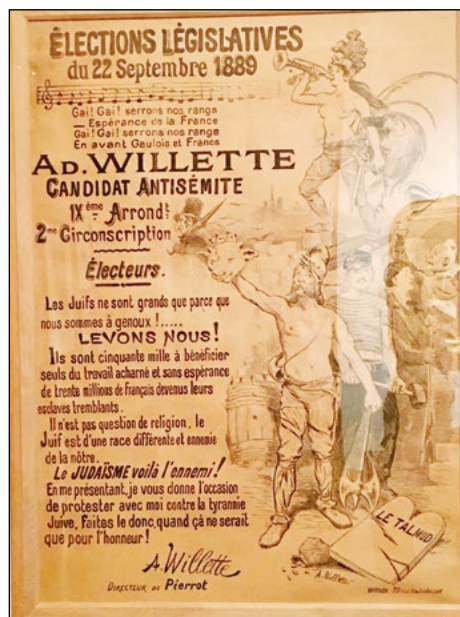 ÉLECTIONS LÉGISLATIVES
du 22 Septembre 1889
Gai! Gai! serrons nos rangs
— Espérance de la France
Gai! Gai! serrons nos rangs
En avant Gaulois et Francs
AD. WILLETTE
CANDIDAT ANTISÉMITE
IXème Arrondt
2me Circonscription
Électeurs.
Les Juifs ne sont grands que parce que
nous sommes à genoux !.....
LEVONS NOUS!
Ils sont cinquante mille à bénéficier
seuls du travail acharné et sans espérance
de trente millions de Français devenus leurs
esclaves tremblants.
Il n'est pas question de religion, le
Juif est d'une race différente et ennemie
de la nôtre.
Le JUDAÏSME voilà l'ennemi!
En me présentant, je vous donne l'occasion
de protester avec moi contre la tyrannie
Juive, faites le donc, quand çà ne serait
que pour l'honneur!
A. Willette
DIRECTEUR DU Pierrot
LE TALMUD
A. Willette